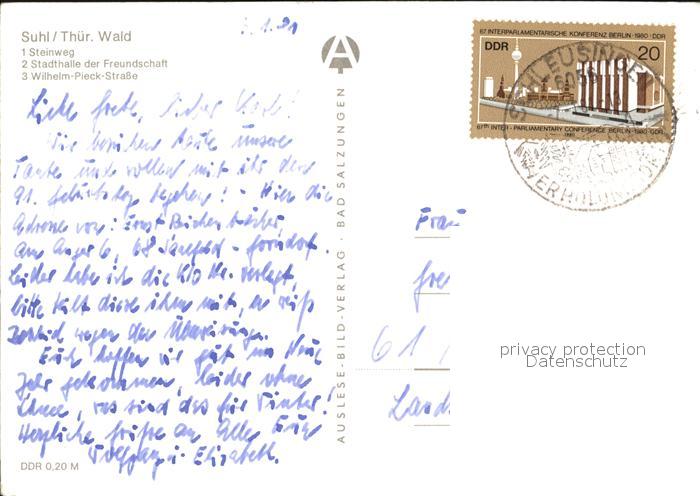 3.1.81
Suhl / Thür. Wald
1 Steinweg
2 Stadthalle der Freundschaft
3 Wilhelm-Pieck-Straße
Liebe Grete, lieber Karl!
Wir besuchen heute unsere
Tante und wollen mit ihr den
91. Geburtstag begehen! - Hier die
Adresse von: Ernst
Am Anger 6, 68 Saalfeld - Gorndorf.
Leider habe ich die Kto Nr. verlegt,
bitte teilt diese ihm mit, er weiß
Bescheid wegen der Überweisung.
Euch hoffen wir gut ins Neue
Jahr gekommen, leider ohne
Schnee, was sind das für Winter!
Herzliche Grüße an Alle Eure
Wolfgang u. Elisabeth.
DDR 0,20 M
AUSLESE-BILD-VERLAG · BAD SALZUNGEN
67. INTERPARLAMENTARISCHE KONFERENZ BERLIN · 1980 · DDR
DDR
20
67th INTER-PARLIAMENTARY CONFERENCE BERLIN · 1980 · GDR
SCHLEUSINGEN
Frau
61
privacy protection
Datenschutz